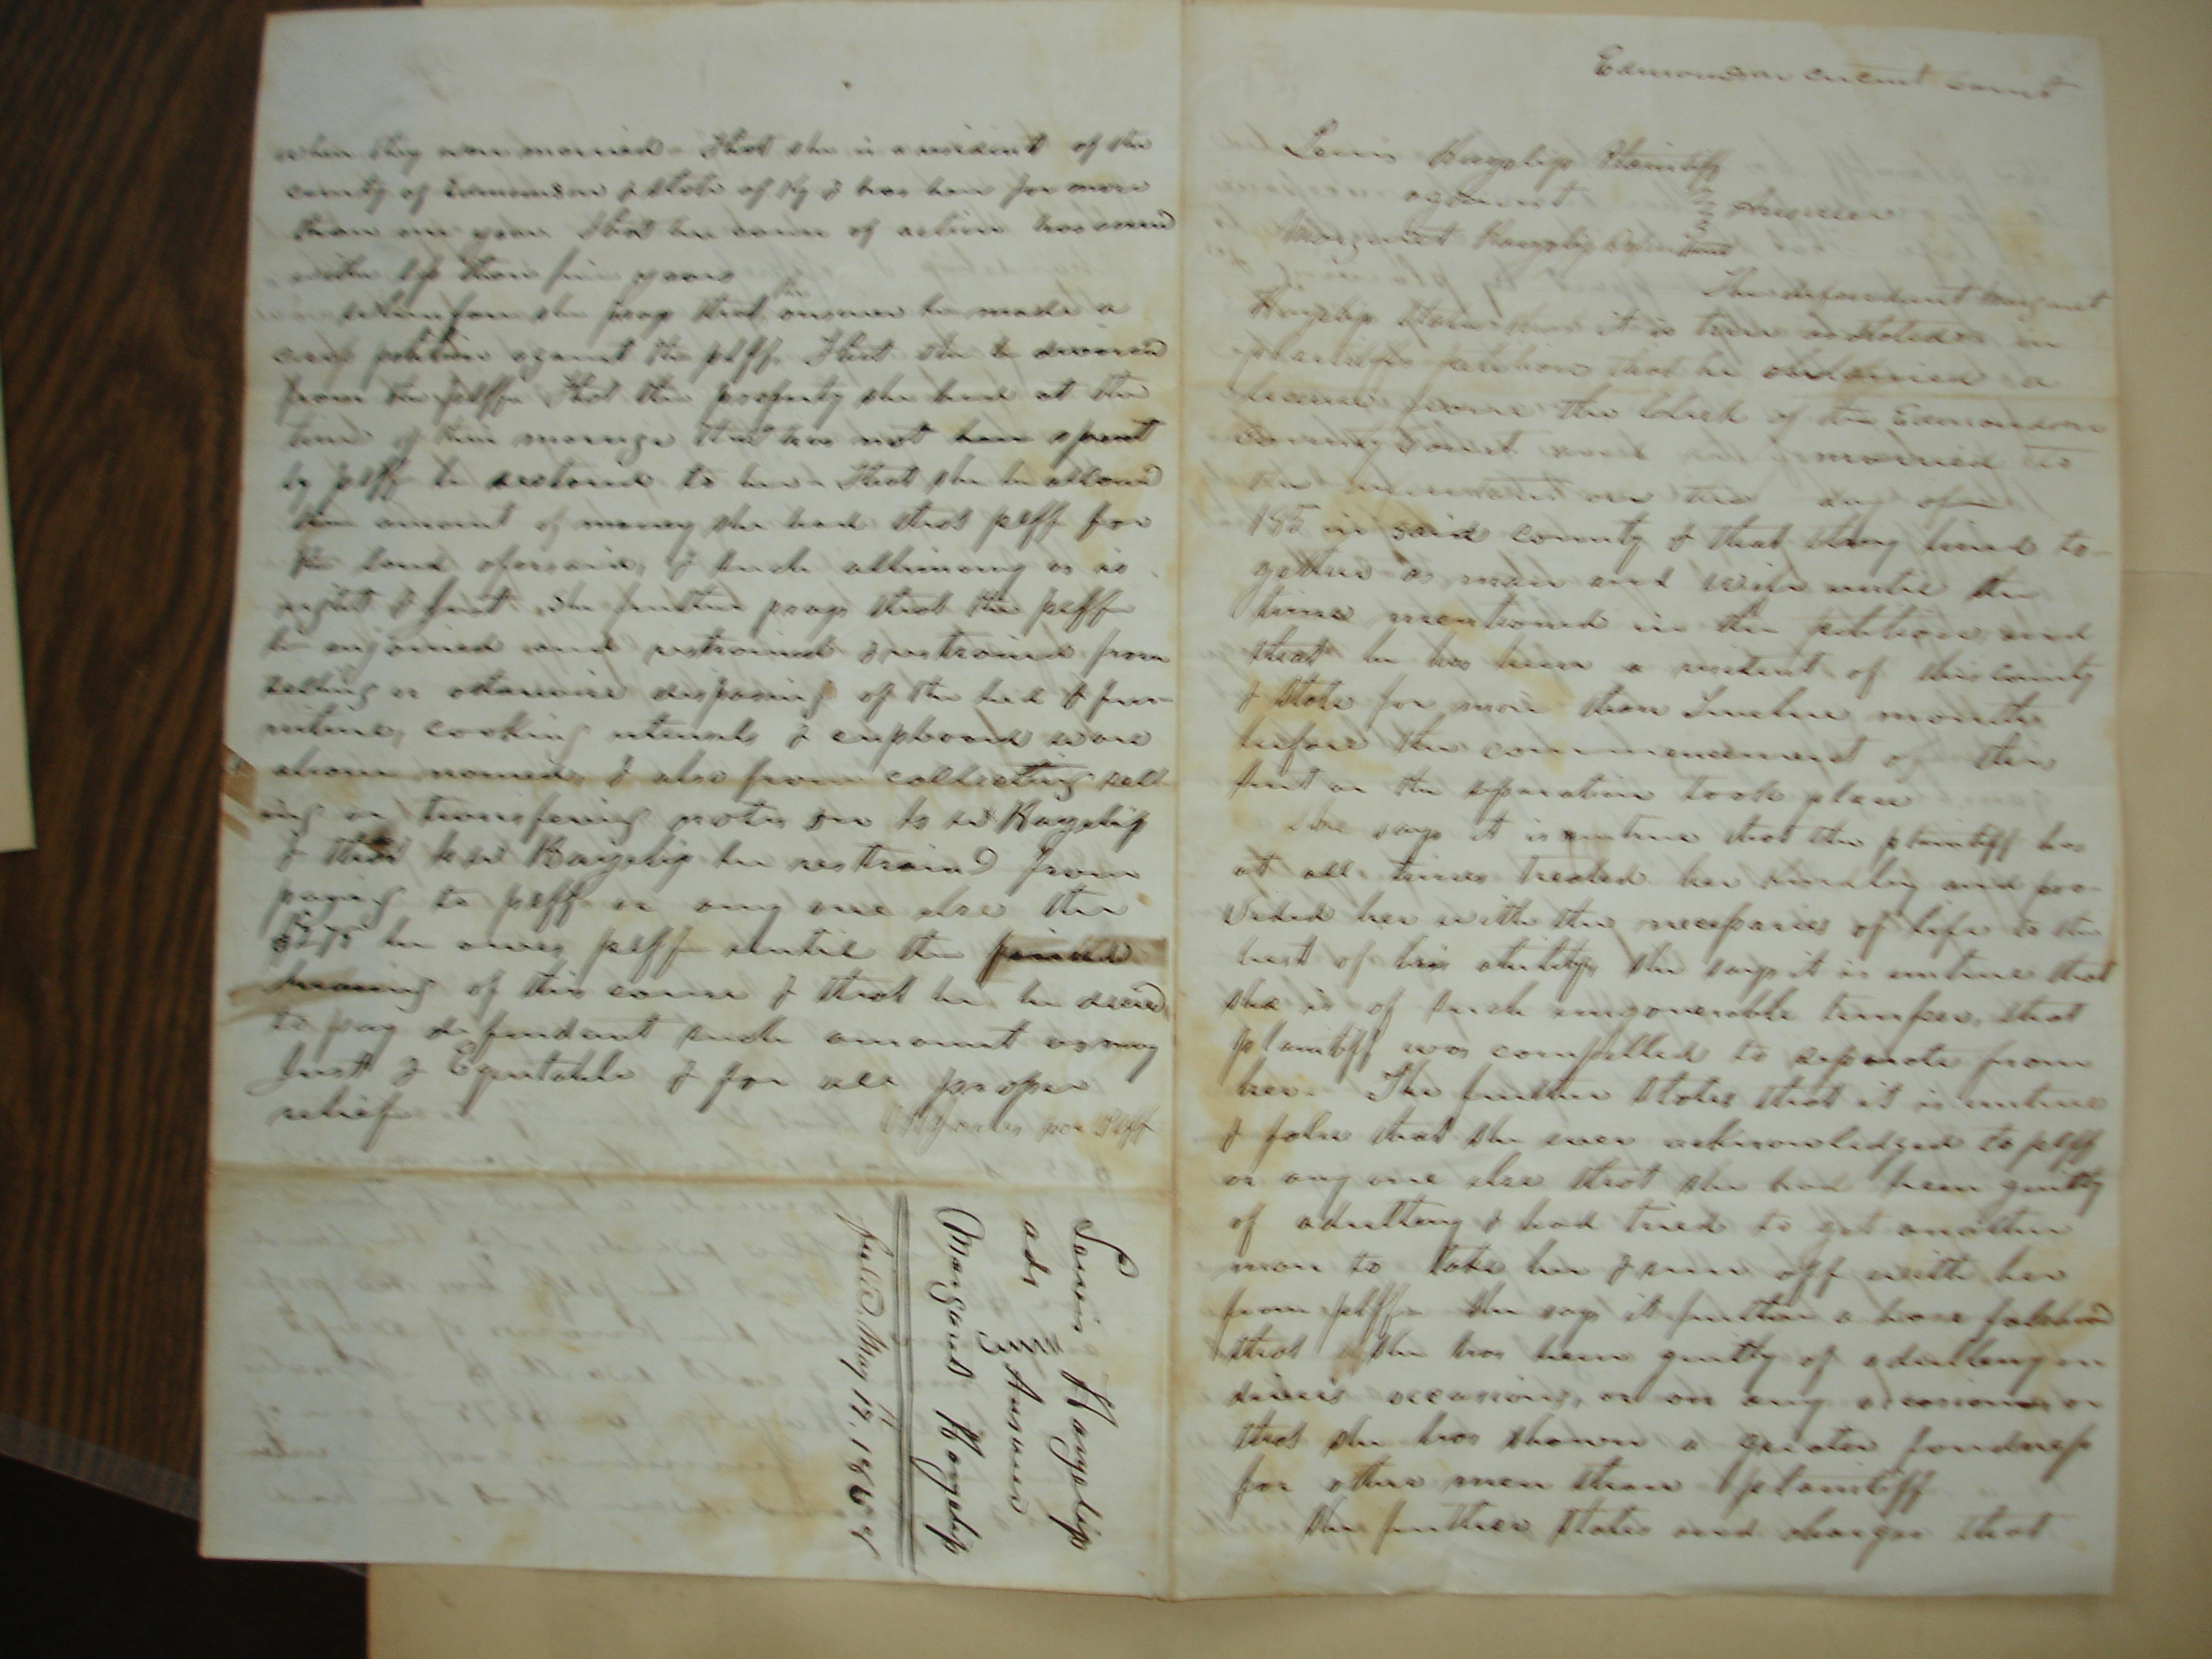 Edmondson circuit court
Lewis Hazelip Plaintiff
against Answer
Margaret Hazelip Defendant
The defendant Margaret
Hazelip states that it is true as stated in
plaintiffs petition that he obtained a
license from the Clerk of the Edmondson
County Court and was married to
the on the day of
185 in said county & that they lived to-
gether as man and wife until the
time mentioned in the petition and
that he has been a resident of this county
& State for more than Twelve months
before the commencement of this
suit or the separation took place
She says it is untrue that the plaintiff has
at all times treated her kindly and pro-
vided her with the necessaries of life to the
best of his ability, she says it is untrue that
she is of such ungovernable temper, that
plaintiff was compelled to separate from
her. She further states that it is untrue
& false that she ever acknowledged to plff
or any one else that she had been guilty
of adultery & had tried to get another
man to take her & run off with her
from plff. She says it further a base falsehood
that she has been guilty of adultery on
divers occasions, or on any occasion, or
that she has shown a greater fondness
for other men than plaintiff
She further states and charges that
when they were married - That she is a resident of the
county of Edmondson & State of Ky & has been for more
than one year. That her cause of action has accrued
within less than five years
Wherefore she prays that her answer be made a
cross petition against the plff. That she be divorced
from the plff. That the property she had at the
time of their marriage that has not been spent
by plff be restored to her - That she be allowed
the amount of money she had that plff for
the land aforesaid, & such allimony as is
right & just. She further prays that the plff
be enjoined and restrained & restrained from
selling or otherwise disposing of the bed & fur-
niture, cooking utensils & cupboard ware
above named, & also from collecting sell-
ing or transfering notes on Hazelip
& that Hazelip be restrained from
paying to plff or any one else the
$275 he owes plff until the
hearing of this cause & that he be decreed
to pay defendant such amount as may
Just & Equitable & for all proper
relief
for Plff
Lewis Hazelip
ads Answer
Margaret Hazelip
filed May 17,